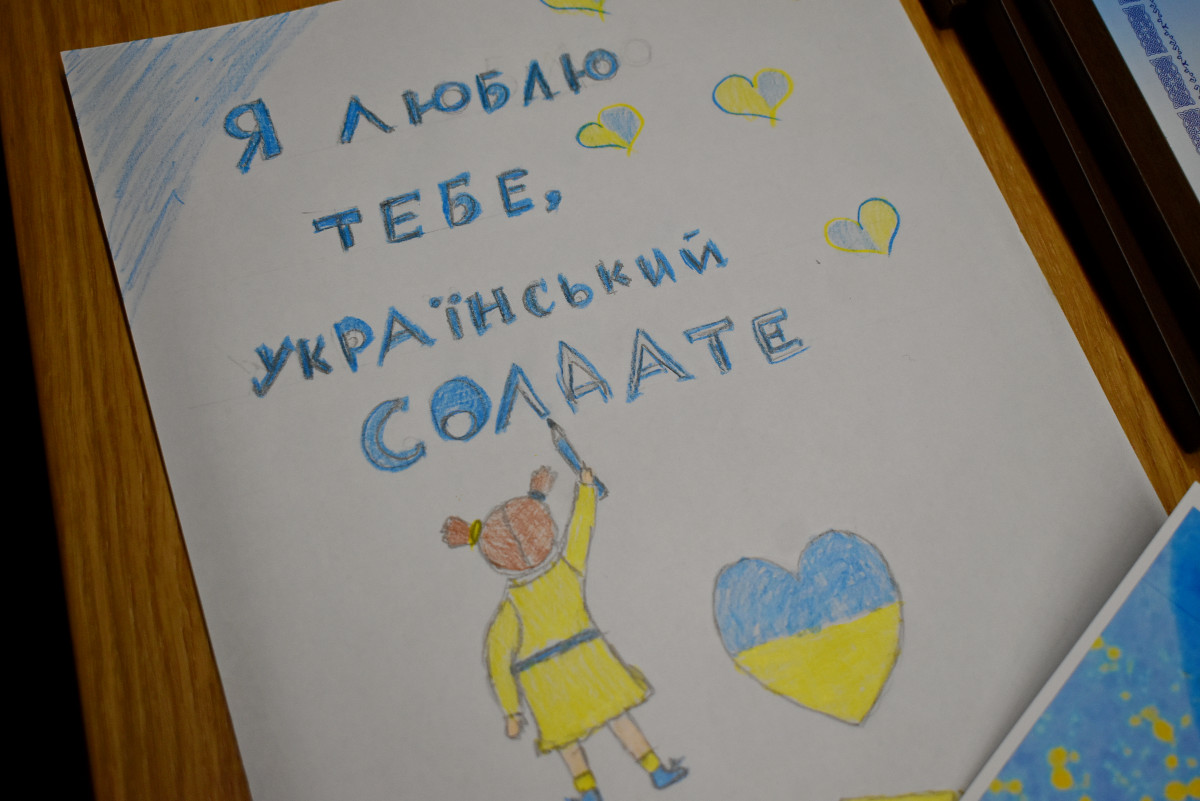 Я ЛЮБЛЮ
ТЕБЕ,
УКРАЇНСЬКИЙ
СОЛДАТЕ